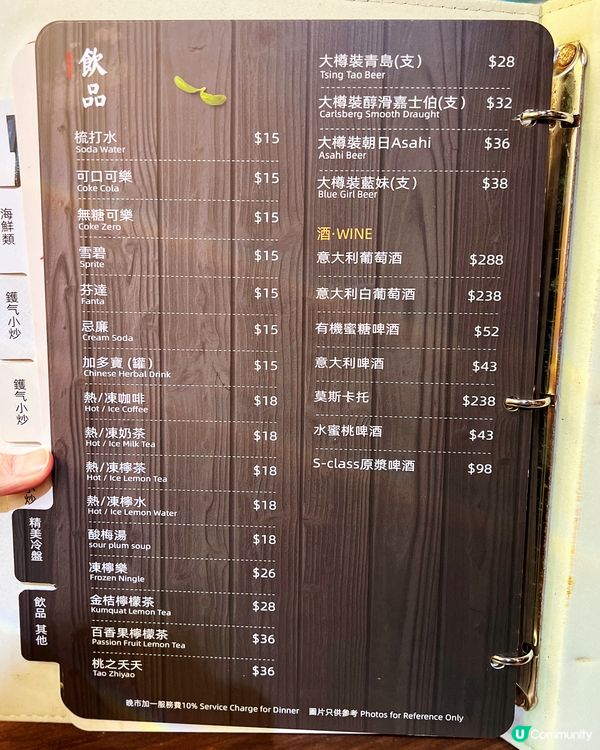 飲品
梳打水 $15
Soda Water
可口可樂 $15
Coke Cola
無糖可樂 $15
Coke Zero
雪碧 $15
Sprite
芬達 $15
Fanta
忌廉 $15
Cream Soda
加多寶 (罐) $15
Chinese Herbal Drink
熱/凍咖啡 $18
Hot / Ice Coffee
熱/凍奶茶 $18
Hot / Ice Milk Tea
熱/凍檸茶 $18
Hot / Ice Lemon Tea
熱/凍檸水 $18
Hot / Ice Lemon Water
酸梅湯 $18
sour plum soup
凍檸樂 $26
Frozen Ningle
金桔檸檬茶 $28
Kumquat Lemon Tea
百香果檸檬茶 $36
Passion Fruit Lemon Tea
桃之夭夭 $36
Tao Zhiyao
大樽裝青島(支) $28
Tsing Tao Beer
大樽裝醇滑嘉士伯(支) $32
Carlsberg Smooth Draught
大樽裝朝日Asahi $36
Asahi Beer
大樽裝藍妹(支) $38
Blue Girl Beer
酒·WINE
意大利葡萄酒 $288
意大利白葡萄酒 $238
有機蜜糖啤酒 $52
意大利啤酒 $43
莫斯卡托 $238
水蜜桃啤酒 $43
S-class原漿啤酒 $98
晚市加一服務費10% Service Charge for Dinner 圖片只供參考 Photos for Reference Only
海鮮類
鑊气小炒
鑊气小炒
炒
精美冷盤
飲品 其他
U Community